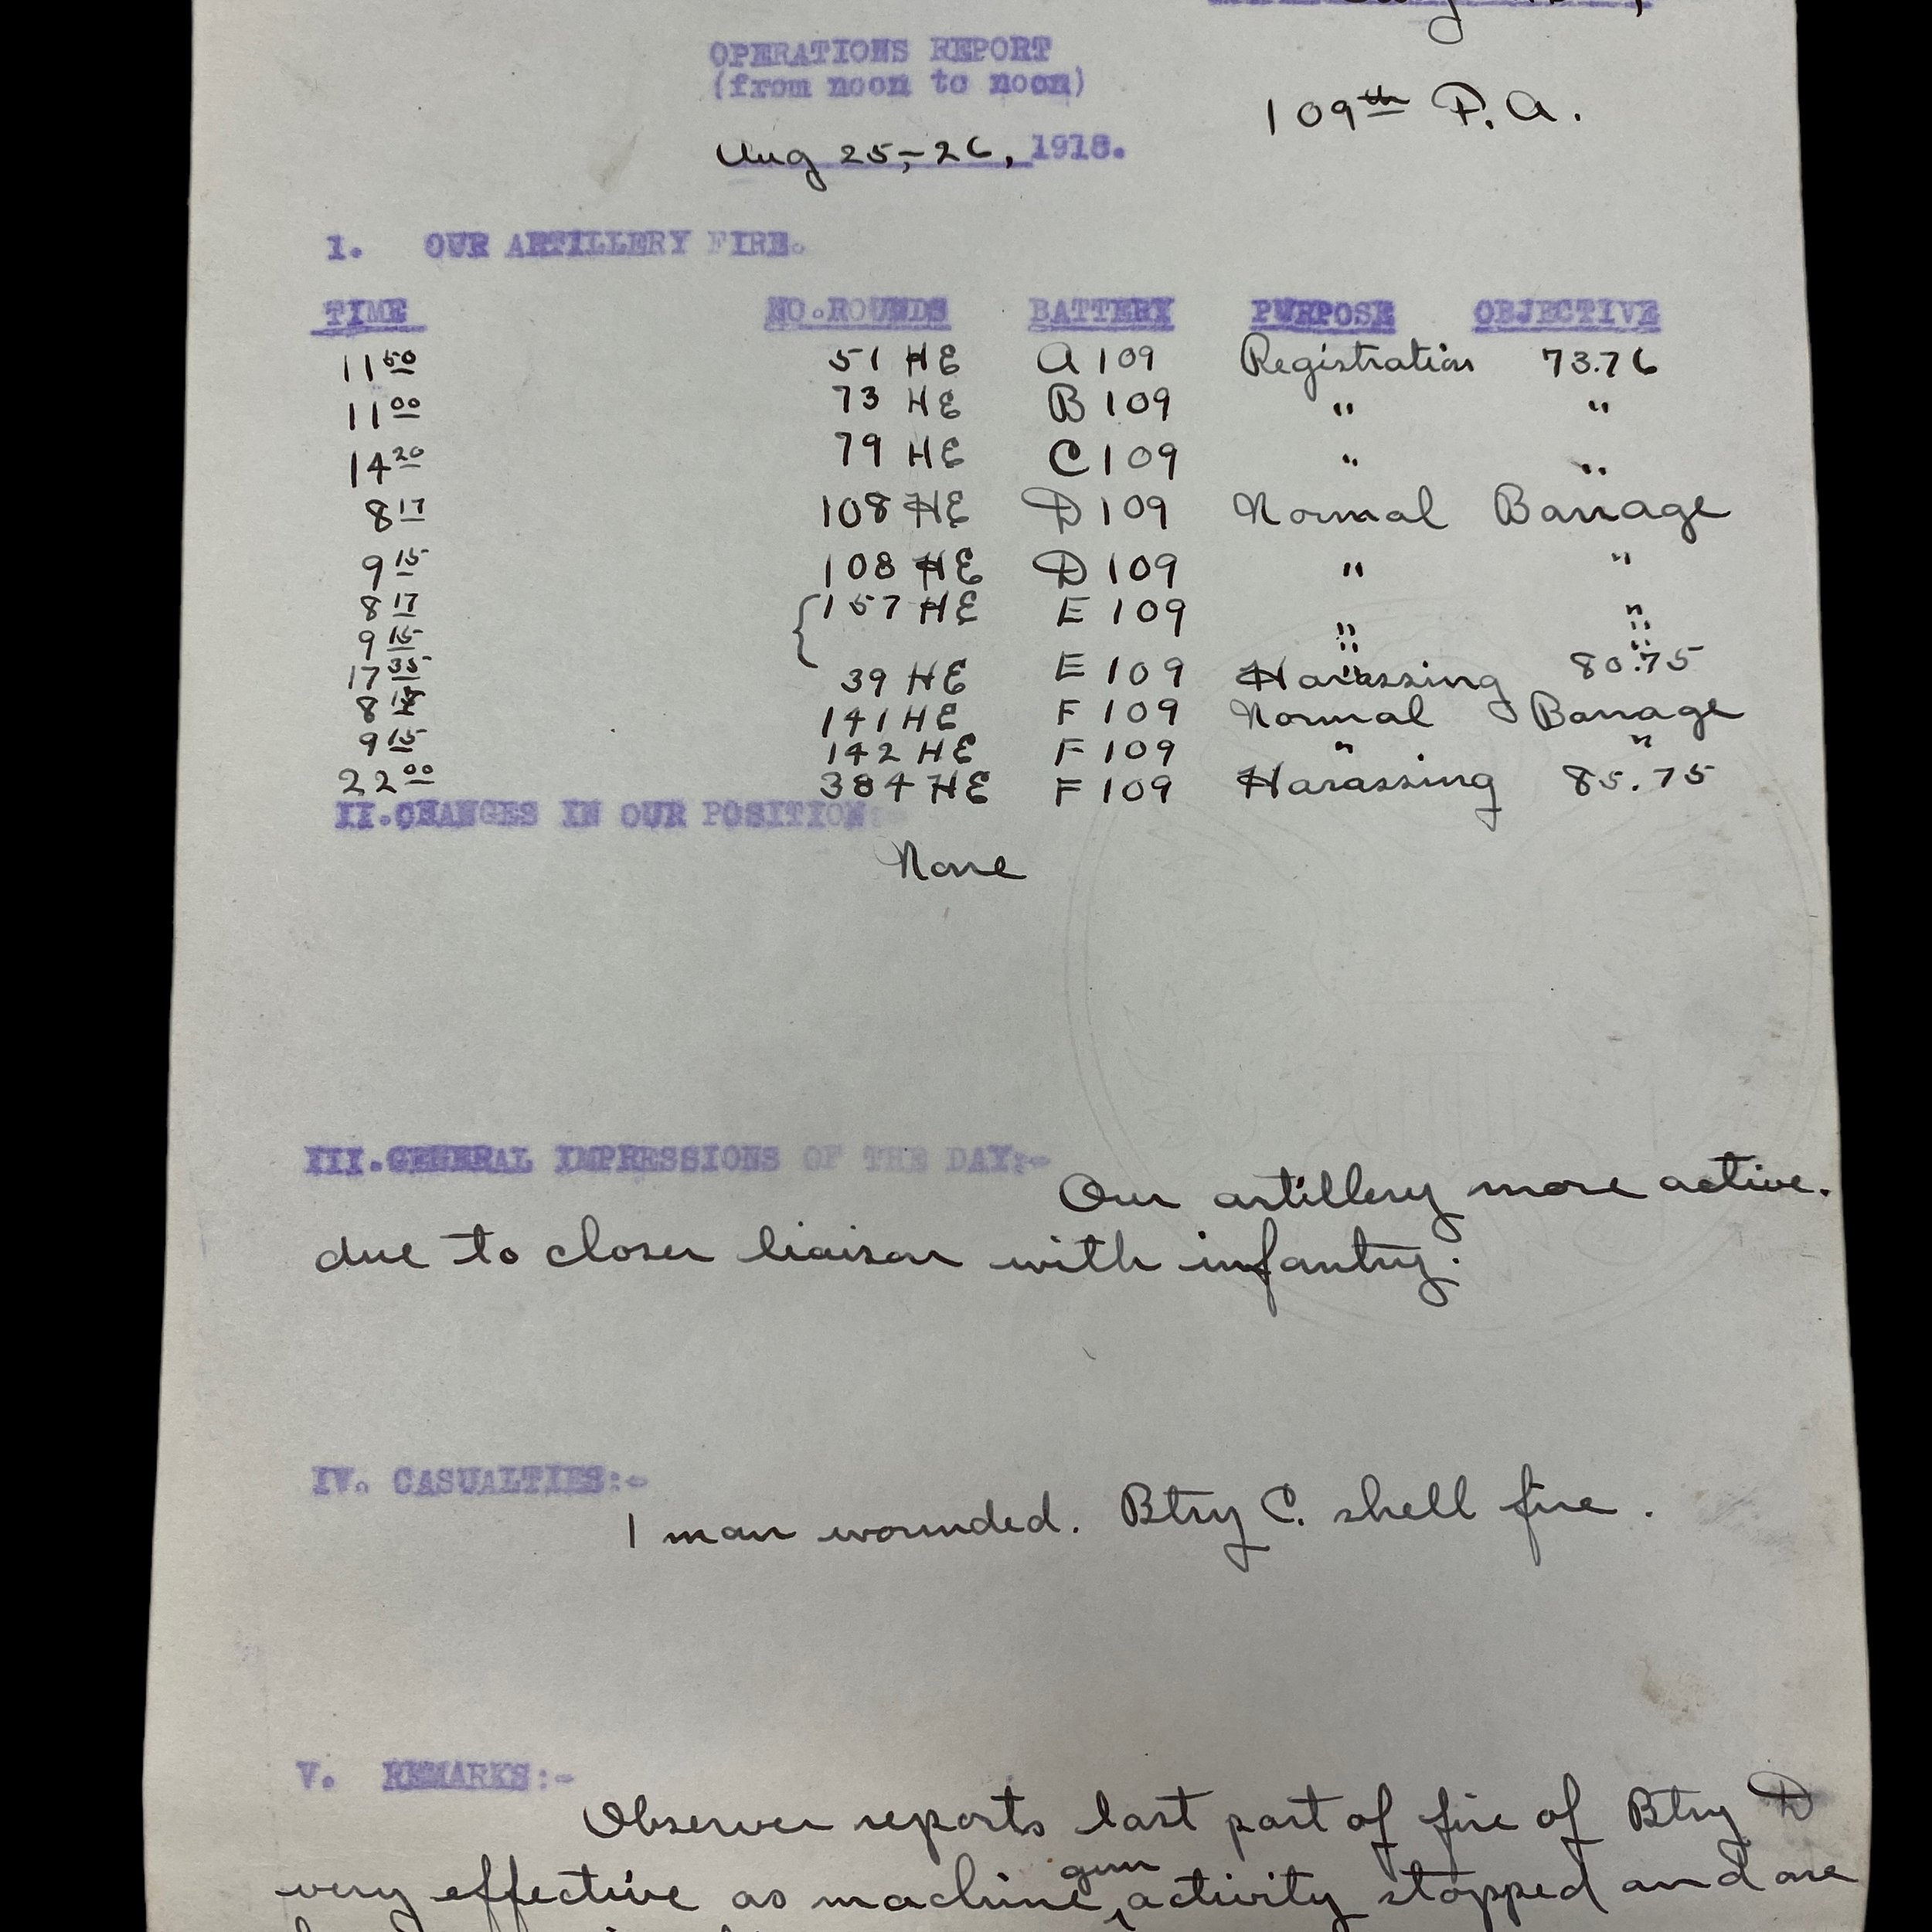 OPERATIONS REPORT
(from noon to noon)
109th F.A.
Aug 25-26, 1918.
1. OUR ARTILLERY FIRE.
TIME NO.ROUNDS BATTERY PURPOSE OBJECTIVE
11 50 51 HE A 109 Registration 73.76
11 00 73 HE B 109 " "
14 20 79 HE C 109 " "
8 17 108 HE D 109 Normal Barrage
9 15 108 HE D 109 " "
8 17 { 157 HE E 109 " "
9 15 " "
17 35 39 HE E 109 Harassing 80.75
8 141 HE F 109 Normal Barrage
9 15 142 HE F 109 " "
22 00 384 HE F 109 Harassing 85.75
II.CHANGES IN OUR POSITION:-
None
III.GENERAL IMPRESSIONS OF THE DAY:-
Our artillery more active.
due to closer liaison with infantry.
IV. CASUALTIES:-
1 man wounded. Btry C. shell fire.
V. REMARKS:-
Observer reports last part of fire of Btry D
very effective as machine gun activity stopped and are